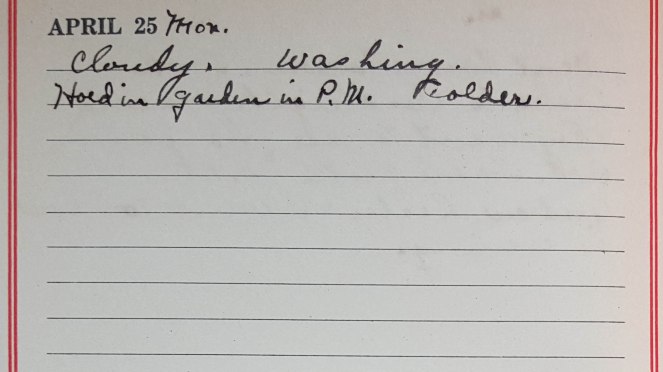 APRIL 25 Mon.
Cloudy. Washing.
Hoed in garden in P.M. Colder.